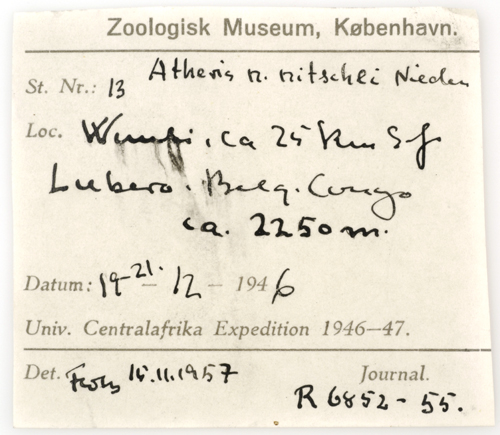 Zoologisk Museum, København.
St. Nr.: 13 Atheris n. nitschei Nieden
Loc. ca 25 km S f
Lubero. Belg. Congo
ca. 2250 m.
Datum: 19-21. - 12 - 1946
Univ. Centralafrika Expedition 1946—47.
Det. 15.11.1957 Journal.
R 6852 - 55.